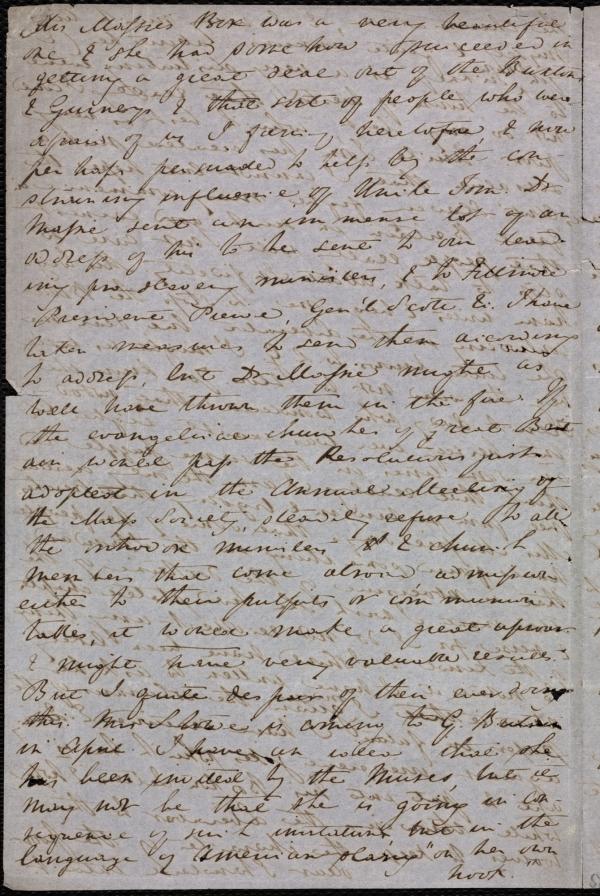 Mrs Massies Box was a very beautiful
one & she had somehow succeeded in
getting a great deal out of the Buxtons
& Gurneys & that sort of people who were
afraid of us I fancy heretofore, & now
perhaps persuaded to help by the con-
straining influence of Uncle Tom. Dr
Massie sent an immense lot of an
address of his to be sent to our lead-
ing pro slavery ministers, & to Fillmore
President Pierce, Gen'l Scott &c. I have
taken measures to send them according
to address, but Dr Massie might as
well have thrown them in the fire. If
the evangelical churches of Great Brit-
ain would pass the Resolutions just
adopted in the Annual Meeting of
the Mass Society, steadily refuse to all
the orthodox ministers & church
members that come abroad admission
either to their pulpits or communion
tables, it would make a great uproar
& might have very valuable results.
But I quite despair of their ever doing
this. Mrs Stowe is coming to G. Britain
in April. I have an idea that she
has been invited by the Muses, but it
may not be that she is going in con
sequence of such invitation, but in the
language of American slang "on her own
hook."